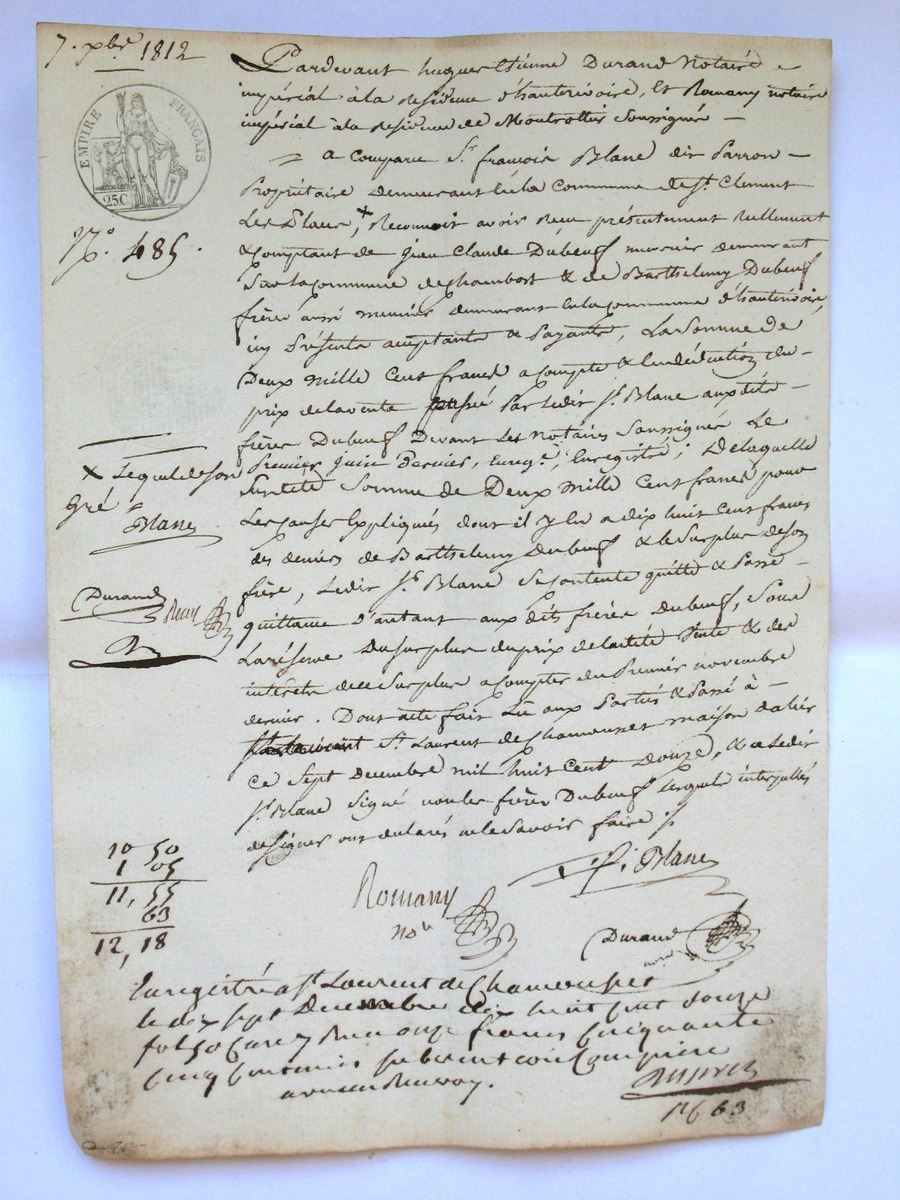 7. xbre 1812
EMPIRE FRANÇAIS
25C.
N.° 485.
Pardevant hugues Etienne Durand Notaire
impérial à la residence d'hauterivoire, et Romany notaire
impérial à la residence de Montrottier Soussignés —
a comparu Sr. françois Blanc dit Parron —
Propriétaire demeurant en la Commune de St. Clement
Les Places, + Reconnoit avoir reçu présentement réellement
& comptant de Jean Claude Dubeuf meunier demeurant
Sur la commune de chambost & de Barthelemy Dubeuf
frère aussi meunier demeurant en la commune d'hauterivoire,
ici Présents acceptants & Payants, La Somme de
Deux mille Cent francs a compte & en déduction du
prix de la vente passée Par ledit Sr. Blanc auxdits
frères Dubeuf Devant Les Notaires Soussignés Le
Premier Juin Dernier, Enregistré; De laquelle
Susdite Somme de Deux mille Cent francs pour
Les causes Expliqués dont il y en a dix huit cent francs
des deniers de Barthelemy Dubeuf & le Surplus de Son
frère, Ledit Sr. Blanc Se contente quitte & Passe
quittance d'autant aux dits frères Dubeuf, Sous
La réserve Du Surplus du prix de la dite Vente & des
intérêts du Surplus a compter du Premier novembre
dernier. Dont acte fait Lu aux Parties & Passé à —
St. Laurent de Chamousset maison dalier
ce Sept Decembre mil huit Cent Douze, & a Ledit
Sr. Blanc Signé non les frères Dubeuf Lesquels interpellés
de Signer ont déclarés ne le Savoir faire
x Lequel de Son
Gré
Blanc
Durand
Rny
10 50
1 05
11, 55
63
12, 18
Blanc
Romany
nore
Durand
Enregistré a St. Laurent de Chamousset
le dix sept Decembre dix huit cent douze
fol. 50 Case 7 Reçu onze francs cinquante
cinq centimes subvention comprise
a un renvoy.
12 f 63